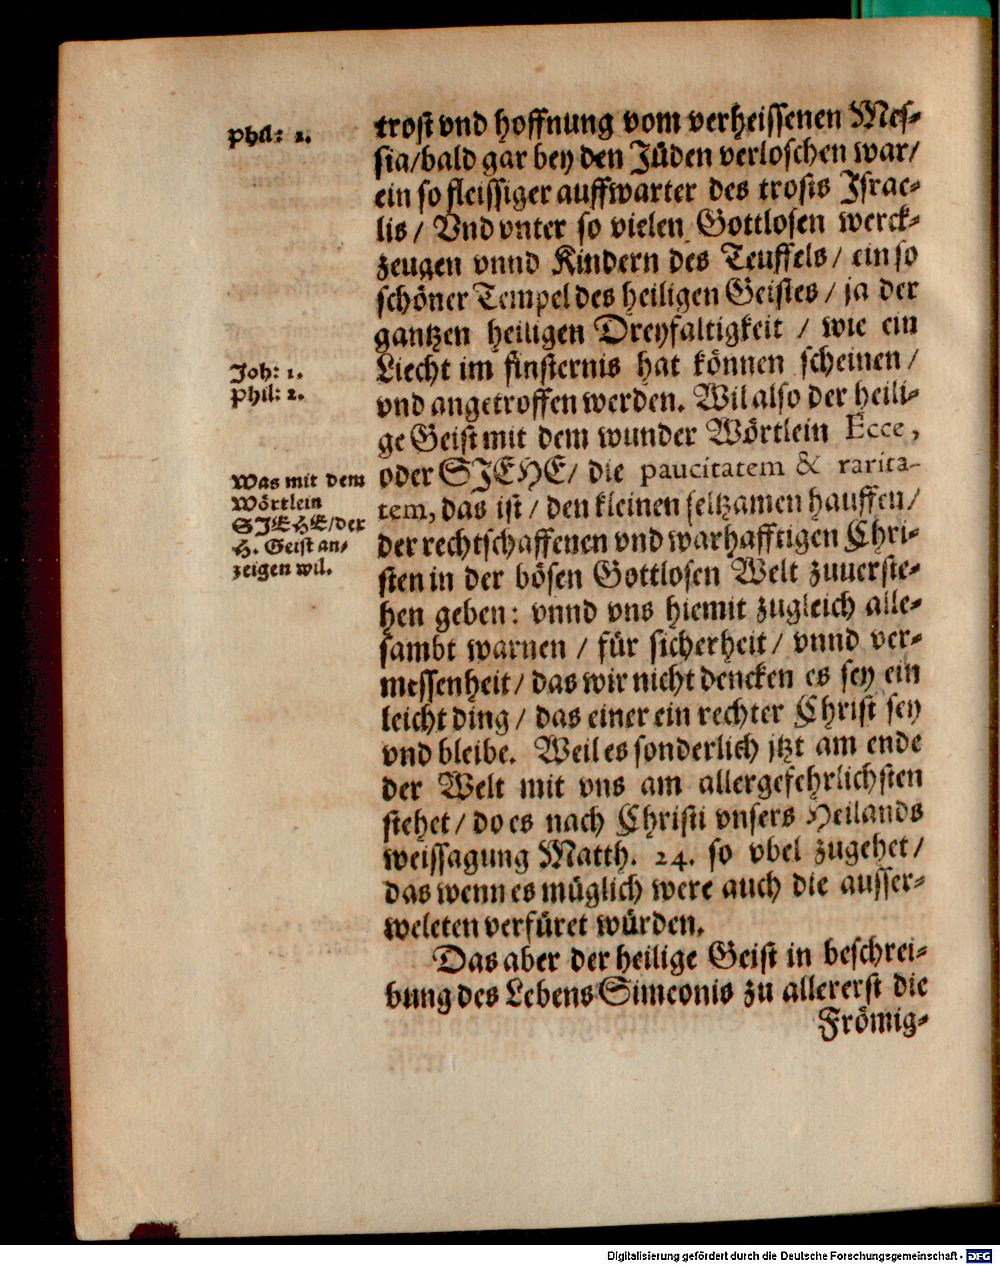 Phil: 2.
trost vnd hoffnung vom verheissenen Mes-
sia/bald gar bey den Jüden verloschen war/
ein so fleissiger auffwarter des trosts Israe-
lis / Vnd vnter so vielen Gottlosen werck-
zeugen vnnd Kindern des Teuffels / ein so
schöner Tempel des heiligen Geistes / ja der
gantzen heiligen Dreyfaltigkeit / wie ein
Joh: 1.
Liecht im finsternis hat können scheinen /
Phil: 2.
vnd angetroffen werden. Wil also der heili-
ge Geist mit dem wunder Wörtlein Ecce,
Was mit dem
Wörtlein
SIEHE/der
H. Geist an-
zeigen wil.
oder SIEHE/ die paucitatem & rarita-
tem, das ist / den kleinen seltzamen hauffen/
der rechtschaffenen vnd warhafftigen Chri-
sten in der bösen Gottlosen Welt zuuerste-
hen geben: vnnd vns hiemit zugleich alle-
sambt warnen / für sicherheit / vnnd ver-
messenheit / das wir nicht dencken es sey ein
leicht ding / das einer ein rechter Christ sey
vnd bleibe. Weil es sonderlich jtzt am ende
der Welt mit vns am allergefehrlichsten
stehet / do es nach Christi vnsers Heilands
weissagung Matth. 24. so vbel zugehet /
das wenn es müglich were auch die ausser-
weleten verfüret würden.
Das aber der heilige Geist in beschrei-
bung des Lebens Simeonis zu allererst die
Frömig-
Digitalisierung gefördert durch die Deutsche Forschungsgemeinschaft - DFG